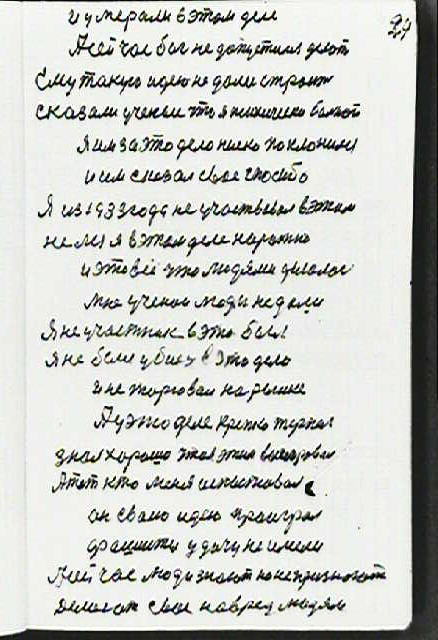 27
и умерали в этом деле
А сей час бог не допустил делот
Ему такую идею не дали строит
сказали ученые што я психически болной
Я им за это дело ниско поклонился
и им сказал свое спасибо
Я из 1933 года не участвовал в этом
я в этом деле
и это все это людями делалос
мне ученои люди не дали
Я не участник в это был
Я не был в это дело
и не торговал на рынке
А у это деле крепко терпел
знал хорошо што я этим
А тот кто меня испытновал
он свою идею проиграл
фашисты удачу не имели
А сей час люди знают но не признают
Делают свое навред людям